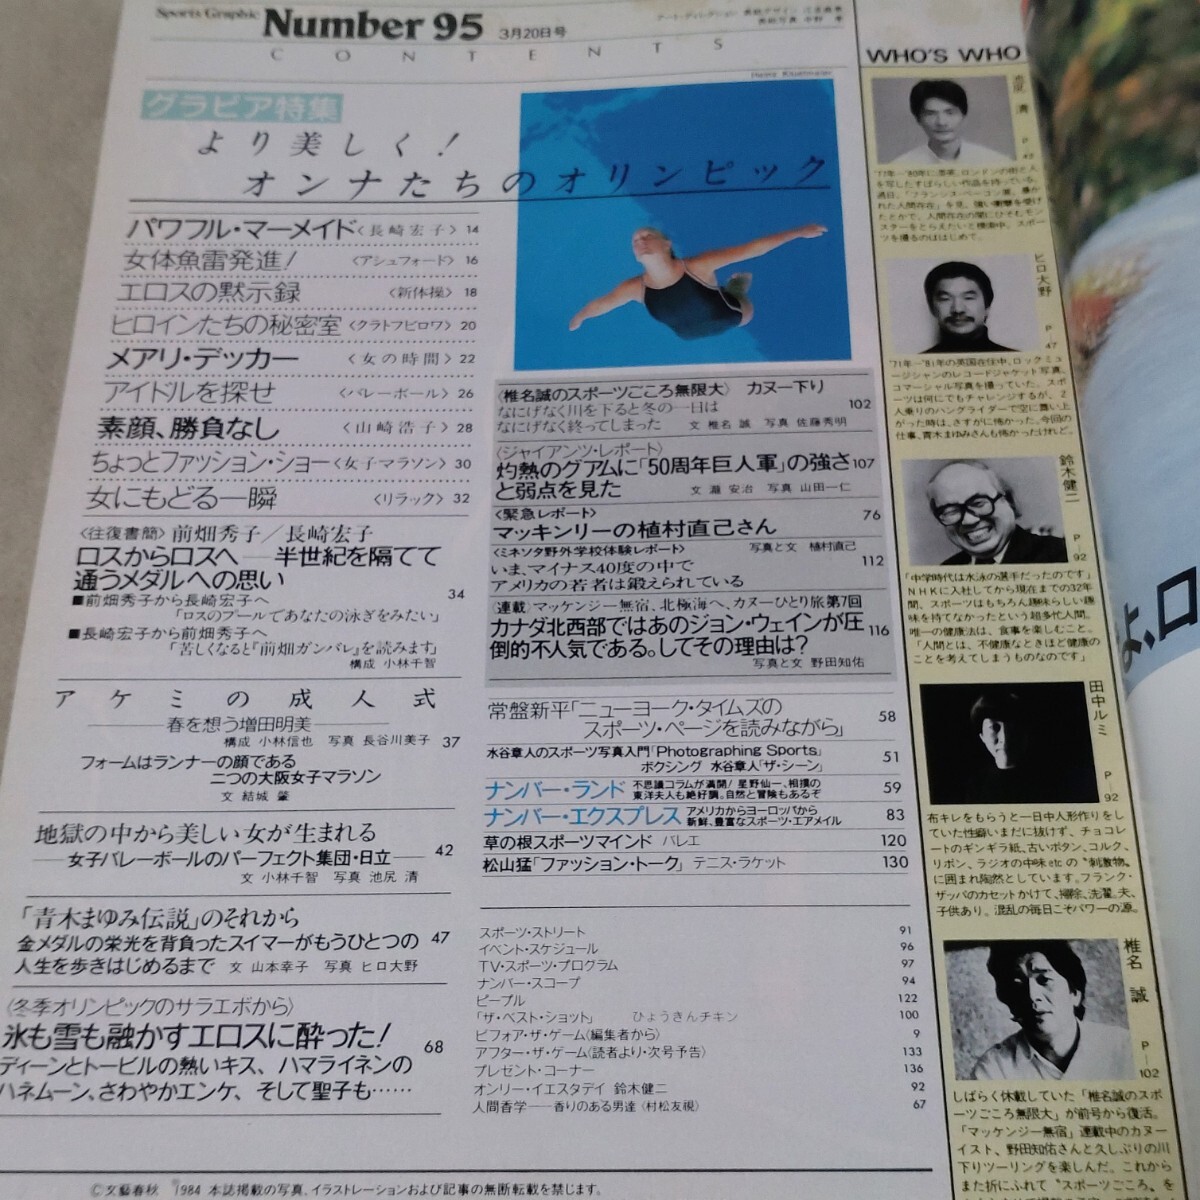 Sports Graphic Number 95 3月20日号
CONTENTS
グラビア特集
より美しく!
オンナたちのオリンピック
パワフル・マーメイド〈長崎宏子〉14
女体魚雷発進!〈アシュフォード〉16
エロスの黙示録〈新体操〉18
ヒロインたちの秘密室〈クラトフビロワ〉20
メアリ・デッカー〈女の時間〉22
アイドルを探せ〈バレーボール〉26
素顔、勝負なし〈山崎浩子〉28
ちょっとファッション・ショー〈女子マラソン〉30
女にもどる一瞬〈リラック〉32
〈往復書簡〉前畑秀子/長崎宏子
ロスからロスへ——半世紀を隔てて
通うメダルへの思い 34
■前畑秀子から長崎宏子へ
「ロスのプールであなたの泳ぎをみたい」
■長崎宏子から前畑秀子へ
「苦しくなると『前畑ガンバレ』を読みます」
構成 小林千智
アケミの成人式
——春を想う増田明美——
構成 小林信也 写真 長谷川美子 37
フォームはランナーの顔である
二つの大阪女子マラソン
文 結城 肇
地獄の中から美しい女が生まれる
——女子バレーボールのパーフェクト集団・日立—— 42
文 小林千智 写真 池尻 清
「青木まゆみ伝説」のそれから
金メダルの栄光を背負ったスイマーがもうひとつの 47
人生を歩きはじめるまで 文 山本幸子 写真 ヒロ大野
〈冬季オリンピックのサラエボから〉
氷も雪も融かすエロスに酔った! 68
ディーンとトービルの熱いキス、ハマライネンの
ハネムーン、さわやかエンケ、そして聖子も……
〈椎名誠のスポーツごころ無限大〉 カヌー下り
なにげなく川を下ると冬の一日は 102
なにげなく終ってしまった 文 椎名 誠 写真 佐藤秀明
〈ジャイアンツ・レポート〉
灼熱のグアムに「50周年巨人軍」の強さ 107
と弱点を見た 文 瀧 安治 写真 山田一仁
〈緊急レポート〉 76
マッキンリーの植村直己さん
〈ミネソタ野外学校体験レポート〉 写真と文 植村直己
いま、マイナス40度の中で 112
アメリカの若者は鍛えられている
〈連載〉マッケンジー無宿、北極海へ、カヌーひとり旅第7回
カナダ北西部ではあのジョン・ウェインが圧 116
倒的不人気である。してその理由は?
写真と文 野田知佑
常盤新平「ニューヨーク・タイムズの 58
スポーツ・ページを読みながら」
水谷章人のスポーツ写真入門「Photographing Sports」 51
ボクシング 水谷章人「ザ・シーン」
ナンバー・ランド 不思議コラムが満開!星野仙一、相撲の 59
東洋夫人も絶好調。自然と冒険もあるぞ
ナンバー・エクスプレス アメリカからヨーロッパから 83
新鮮、豊富なスポーツ・エアメイル
草の根スポーツマインド バレエ 120
松山猛「ファッション・トーク」 テニス・ラケット 130
スポーツ・ストリート 91
イベント・スケジュール 96
TV・スポーツ・プログラム 97
ナンバー・スコープ 94
ピープル 122
「ザ・ベスト・ショット」 ひょうきんチキン 100
ビフォア・ザ・ゲーム(編集者から) 9
アフター・ザ・ゲーム(読者より・次号予告) 133
プレゼント・コーナー 136
オンリー・イエスタデイ 鈴木健二 92
人間香学——香りのある男達〈村松友視〉 67
©文藝春秋 1984 本誌掲載の写真、イラストレーションおよび記事の無断転載を禁じます。
WHO'S WHO
池尻 清 P—43
'77年—'80年に渡英。ロンドンの街と人
を写したすばらしい作品を持っている。
過日、「フランシス・ベーコン展、暴か
れた人間存在」を見、強い衝撃を受け
たとかで、人間存在の闇にひそむモン
スターをとらえたいと模索中。スポー
ツを撮るのははじめて。
ヒロ大野 P—47
'71年—'81年の英国在住中、ロックミュ
ージシャンのレコードジャケット写真、
コマーシャル写真を撮っていた。スポ
ーツは何にでもチャレンジするが、2
人乗りのハングライダーで空に舞い上
がった時は、さすがに怖かった。今回の
仕事、青木まゆみさんも怖かったけれど。
鈴木健二 P—92
「中学時代は水泳の選手だったのです」
NHKに入社してから現在までの32年
間、スポーツはもちろん趣味らしい趣
味を持てなかったという超多忙人間。
唯一の健康法は、食事を楽しむこと。
「人間とは、不健康なときほど健康の
ことを考えてしまうものなのです」
田中ルミ P—92
布キレをもらうと一日中人形作りをし
ていた性癖いまだに抜けず、チョコレ
ートのギンギラ紙、古いボタン、コルク、
リボン、ラジオの中味etcの〝刺激物〟
に囲まれ陶然としています。フランク・
ザッパのカセットかけて、掃除、洗濯。夫、
子供あり。混乱の毎日こそパワーの源。
椎名 誠 P—102
しばらく休載していた「椎名誠のスポ
ーツごころ無限大」が前号から復活。
「マッケンジー無宿」連載中のカヌー
イスト、野田知佑さんと久しぶりの川
下りツーリングを楽しんだ。これから
また折にふれて〝スポーツごころ〟を